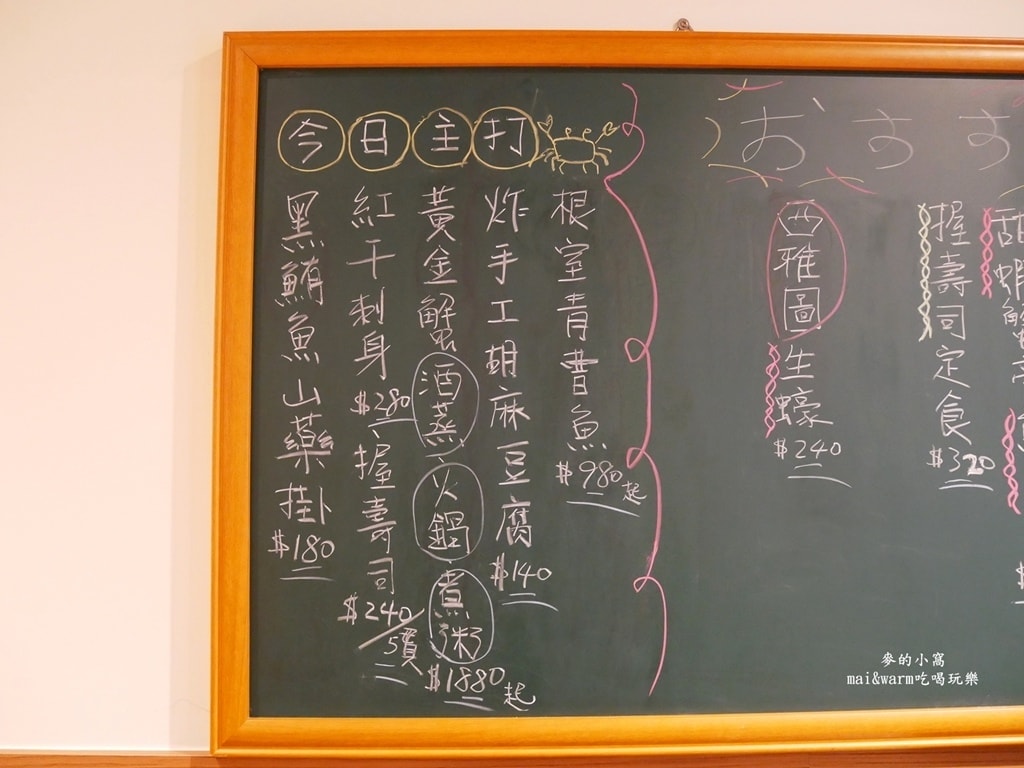 今日主打
根室青曹魚
$980起
炸手工胡麻豆腐
$140
黃金蟹
酒蒸
火鍋
煮粥
$1880起
紅干刺身
$280
握壽司
$240/5貫
黑鮪魚山藥掛
$180
おすす
甜蝦
握壽司定食
$320
西雅圖生蠔
$240
麥的小窩
mai&warm吃喝玩樂